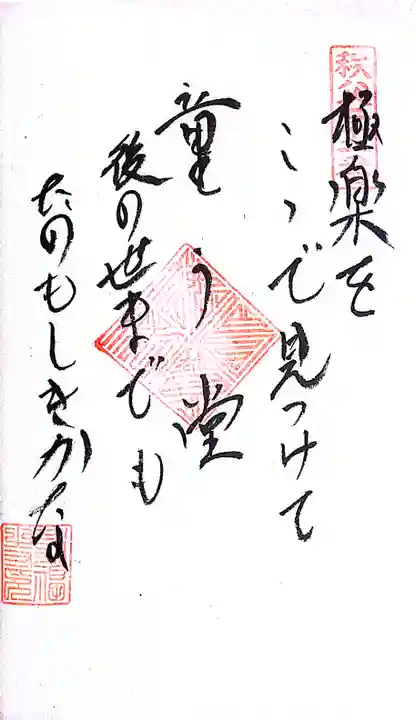 極楽を
こゝで見つけて
童う堂
後の世までも
たのもしきかな